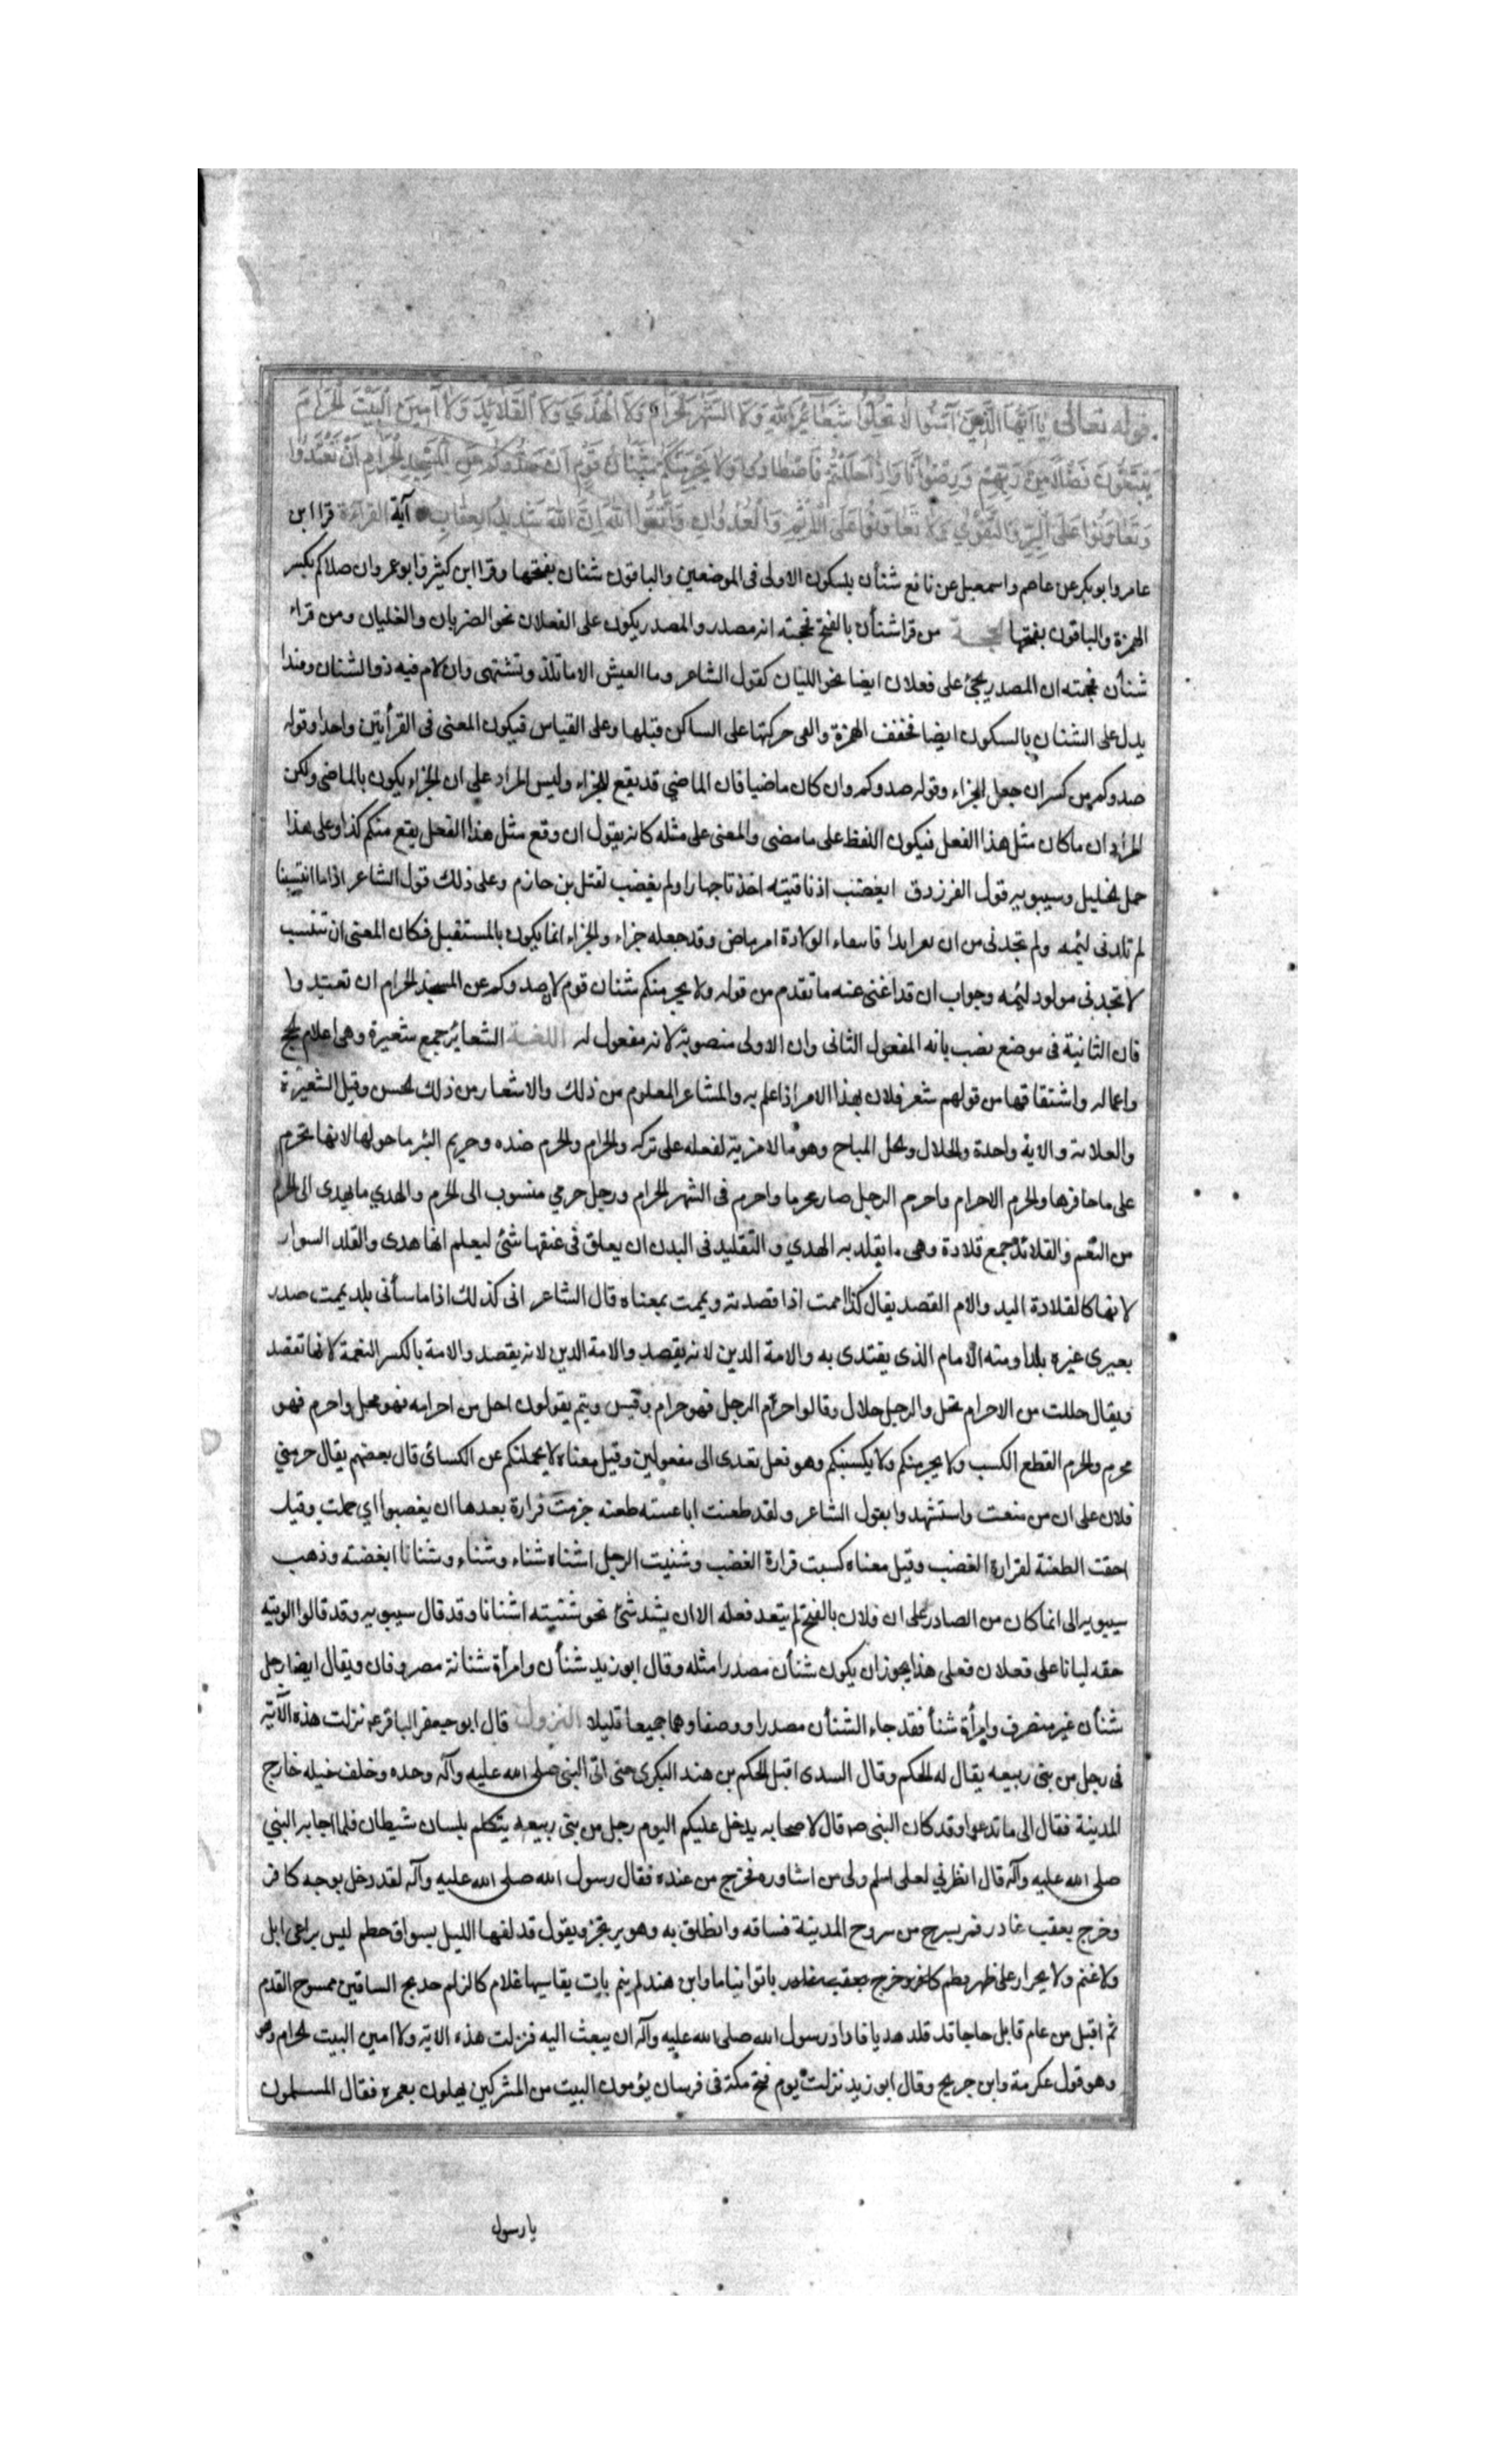 قوله تعالى يَا أَيُّهَا الَّذِينَ آمَنُوا لَا تُحِلُّوا شَعَائِرَ اللهِ وَلَا الشَّهْرَ الْحَرَامَ وَلَا الْهَدْيَ وَلَا الْقَلَائِدَ وَلَا آمِّينَ الْبَيْتَ الْحَرَامَ
يَبْتَغُونَ فَضْلًا مِنْ رَبِّهِمْ وَرِضْوَانًا وَإِذَا حَلَلْتُمْ فَاصْطَادُوا وَلَا يَجْرِمَنَّكُمْ شَنَآنُ قَوْمٍ أَنْ صَدُّوكُمْ عَنِ الْمَسْجِدِ الْحَرَامِ أَنْ تَعْتَدُوا
وَتَعَاوَنُوا عَلَى الْبِرِّ وَالتَّقْوَى وَلَا تَعَاوَنُوا عَلَى الْإِثْمِ وَالْعُدْوَانِ وَاتَّقُوا اللهَ إِنَّ اللهَ شَدِيدُ الْعِقَابِ آية القراءة قرا ابن
عامر وابو بكر عن عاصم واسمعيل عن نافع شنأن بسكون الاولى فى الموضعين والباقون شنان بفتحها وقرا ابن كثير وابو عمرو ان صدوكم بكسر
الهمزة والباقون بفتحها الحجة من قرا شنأن بالفتح فحجته انه مصدر والمصدر يكون على الفعلان نحو الضربان والغليان ومن قراء
شنأن فحجته ان المصدر يجئ على فعلان ايضا نحو الليان كقول الشاعر وما العيش الا ما تلذ وتشتهى وان لام فيه ذو الشنان وفندا
يدل على الشنان بالسكون ايضا فخفف الهمزة والقى حركتها على الساكن قبلها وعلى القياس فيكون المعنى فى القرأتين واحدا وقوله
صدوكم من كسر ان جعل للجزاء وقوله صدوكم وان كان ماضيا فان الماضي قد يقع للجزاء وليس المراد على ان الجزاء يكون بالماضى ولكن
المراد ان ما كان مثل هذا الفعل فيكون اللفظ على ما مضى والمعنى على مثله كانه يقول ان وقع مثل هذا الفعل يقع منكم كذا وعلى هذا
حمل الخليل وسيبويه قول الفرزدق ايغضب اذنا قتيته اخذتا جهارا ولم يغضب لقتل بن حازم وعلى ذلك قول الشاعر اذا ما انتسبنا
لم تلدنى لئيمه ولم تجدنى من ان بعرابدا فاسعاء الولادة امر ماض وقد جعله جزاء والجزاء انما يكون بالمستقبل فكان المعنى ان تنتسب
لا تجدنى مولود لئيمه وجواب ان قد اغنى عنه ما تقدم من قوله ولا يجرمنكم شنان قوم لا صدوكم عن المسجد الحرام ان تعتدوا
فان الثانية فى موضع نصب بانه المفعول الثانى وان الاولى منصوبة لانه مفعول له اللغة الشعائر جمع شعيرة وهى اعلام الحج
واعماله واشتقاقها من قولهم شعر فلان بهذا الامر اذا علم به والمشاعر المعلوم من ذلك والاشعار من ذلك الحسن وقيل الشعيرة
والعلامة والاية واحدة والحلال والحل المباح وهو ما لا مزية لفعله على تركه والحرام والحرم ضده وحريم البئر ما حولها لانها يحرم
على ما حافرها والحرم الاحرام واحرم الرجل صار محرما واحرم فى الشهر الحرام ورجل حرمي منسوب الى الحرم والهدي ما يهدى الى الحرم
من النعم والقلائد جمع قلادة وهى ما يقلد به الهدي والتقليد فى البدن ان يعلق فى عنقها شئ ليعلم انها هدى والقلد السوار
لانها كالقلادة اليد والام القصد يقال كذا اممت اذا قصدته ويممت بمعناه قال الشاعر انى كذلك اذا ما سأنى بلد يممت صدر
بعيرى غيره بلدا ومنه الامام الذى يقتدى به والامة الدين لانه يقصد والامة الدين لانه يقصد والامة بالكسر النعمة لانها تقصد
ويقال حللت من الاحرام تحل والرجل حلال وقالوا احرم الرجل فهو حرام وقيس وتيم يقولون احل من احرامه فهو محل واحرم فهو
محرم والجرم القطع الكسب ولا يجرمنكم ولا يكسبنكم وهو فعل تعدى الى مفعولين وقيل معناه لا يحملنكم عن الكسائى قال بعضهم يقال جرمني
فلان على ان من منعت واستشهدوا بقول الشاعر ولقد طعنت ابا عيينه طعنه جرمت فزارة بعدها ان يغضبوا اي حملت وقيل
احقت الطعنة لفزارة الغضب وقيل معناه كسبت فزارة الغضب وشنيت الرجل اشناه شناء وشناء وشنانا ابغضته وذهب
سيبويه الى انما كان من الصادر على ان فلان بالفتح لم يتعد فعله الا ان يشد شئ نحو شنيته اشنانا وقد قال سيبويه وقد قالوا الويته
حقه ليانا على فعلان فعلى هذا يجوز ان يكون شنأن مصدرا مثله وقال ابو زيد شنأن وامرأة شنانة مصروفان ويقال ايضا رجل
شنأن غير منصرف وامرأة شنأ فقد جاء الشنأن مصدرا ووصفا وهما جميعا قليلا النزول قال ابو جعفر الباقر ع نزلت هذه الآية
فى رجل من بنى ربيعه يقال له الحكم وقال السدى اقبل الحكم بن هند البكرى حتى اتى النبى صلى الله عليه وآله وحده وخلف خيله خارج
المدينة فقال الى ما تدعوا وقد كان النبى ص قال لاصحابه يدخل عليكم اليوم رجل من بنى ربيعه يتكلم بلسان شيطان فلما اجابه النبي
صلى الله عليه وآله قال انظرني لعلى اسلم ولى من اشاوره فخرج من عنده فقال رسول الله صلى الله عليه وآله لقد دخل بوجه كافر
وخرج بعقب غادر فمر بسرح من سروح المدينة فساقه وانطلق به وهو يرتجز ويقول قد لفها الليل بسواق حطم ليس براعى ابل
ولا غنم ولا بجزار على ظهر وظم كافر وخرج بعقب غادر باتوا نياما وابن هند لم ينم بات يقاسيها غلام كالزلم خدلج الساقين ممسوح القدم
ثم اقبل من عام قابل حاجا قد قلد هديا فاراد رسول الله صلى الله عليه وآله ان يبعث اليه فنزلت هذه الاية ولا امين البيت الحرام وهو
وهو قول عكرمة وابن جريح وقال ابو زيد نزلت يوم فتح مكة فى فرسان يؤمون البيت من المشركين يهلون بعمره فقال المسلمون
يا رسول